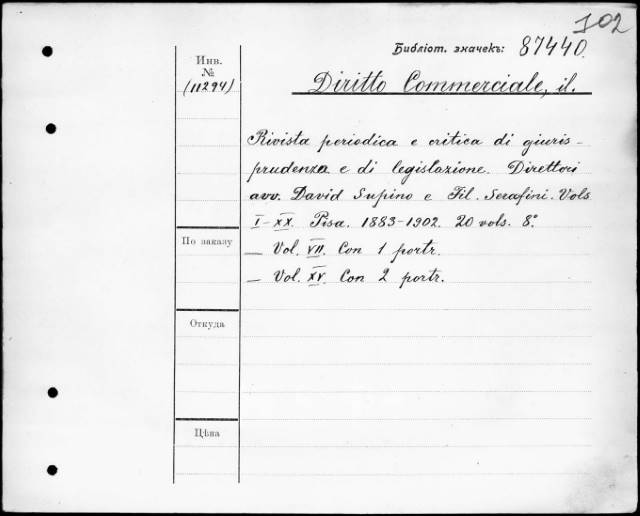 102
Библіот. значекъ: 87440.
Инв.
№
(11294)
Diritto Commerciale, il.
Rivista periodica e critica di giuris-
prudenza e di legislazione. Direttori
avv. David Supino e Fil. Serafini. Vols
I-XX. Pisa. 1883-1902. 20 vols. 8°.
— Vol. VII. Con 1 portr.
— Vol. XV. Con 2 portr.
По заказу
Откуда
Цѣна